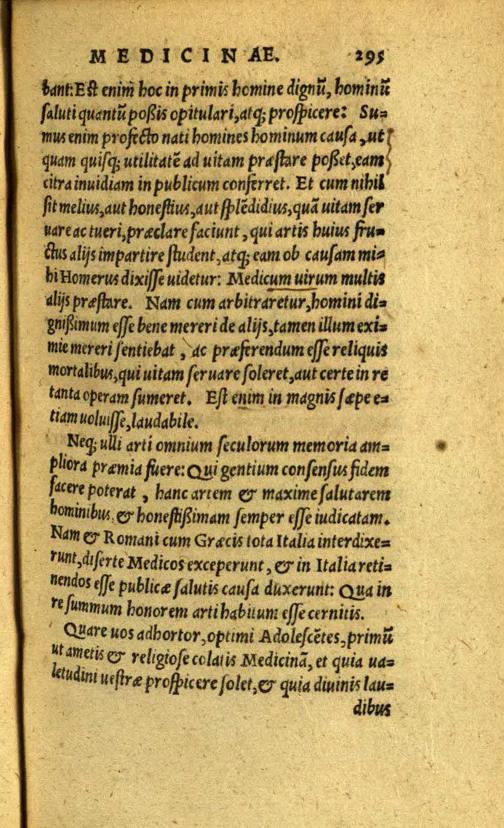 MEDICINAE. 295
bant: Est enim hoc in primis homine dignũ, hominũ
saluti quantũ poßis opitulari, atq; prospicere: Su=
mus enim profecto nati homines hominum causa, ut
quam quisq; utilitatẽ ad uitam præstare poßet, eam
citra inuidiam in publicum conferret. Et cum nihil
sit melius, aut honestius, aut splẽdidius, quã uitam ser
uare ac tueri, præclare faciunt, qui artis huius fru=
ctus alijs impartire student, atq; eam ob causam mi=
hi Homerus dixisse uidetur: Medicum uirum multis
alijs præstare. Nam cum arbitraretur, homini di=
gnißimum esse bene mereri de alijs, tamen illum exi=
mie mereri sentiebat, ac præferendum esse reliquis
mortalibus, qui uitam seruare soleret, aut certe in re
tanta operam sumeret. Est enim in magnis sæpe e=
tiam uoluisse, laudabile.
Neq; ulli arti omnium seculorum memoria am=
pliora præmia fuere: Qui gentium consensus fidem
facere poterat, hanc artem & maxime salutarem
hominibus, & honestißimam semper esse iudicatam.
Nam & Romani cum Græcis tota Italia interdixe=
runt, diserte Medicos exceperunt, & in Italia reti=
nendos esse publicæ salutis causa duxerunt: Qua in
re summum honorem arti habitum esse cernitis.
Quare uos adhortor, optimi Adolescẽtes, primũ
ut ametis & religiose colatis Medicinã, et quia ua=
letudini uestræ prospicere solet, & quia diuinis lau=
dibus